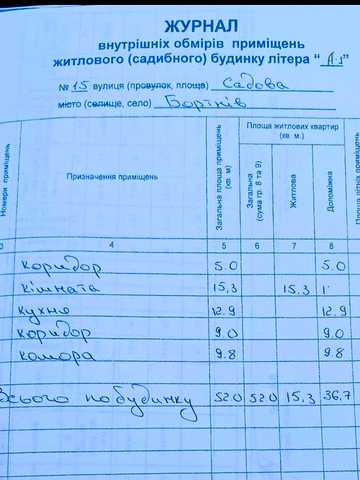 ЖУРНАЛ
внутрішніх обмірів приміщень
житлового (садибного) будинку літера “А-1”
№ 15 вулиця (провулок, площа) Садова
місто (селище, село) Бортків
Номери приміщень
Призначення приміщень
Загальна площа приміщень (кв. м)
Площа житлових квартир (кв. м.)
Загальна (сума гр. 8 та 9)
Житлова
Допоміжна
Площа літніх приміщень
3 4 5 6 7 8
коридор 5.0 5.0
кімната 15,3 15.3
кухня 12.9 12.9
коридор 9.0 9.0
комора 9.8 9.8
Всього по будинку 52.0 52.0 15.3 36,7